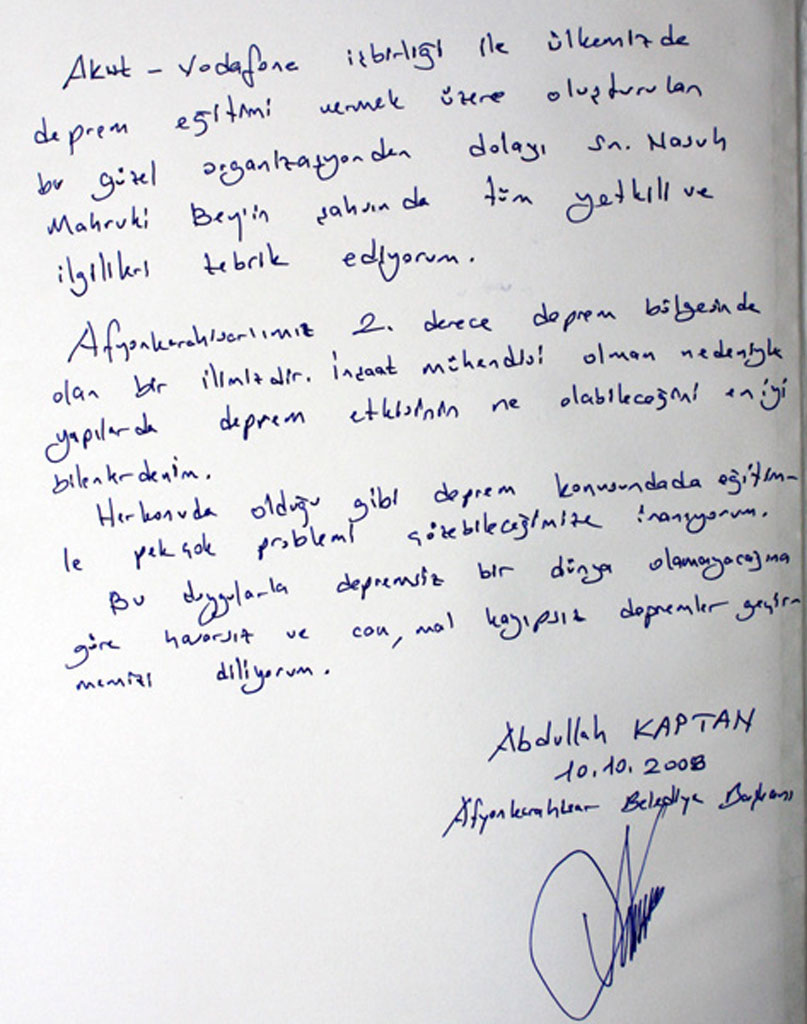 Akut - Vodafone işbirliği ile ülkemizde
deprem eğitimi vermek üzere oluşturulan
bu güzel organizasyonden dolayı sn. Nasuh
Mahruki Bey'in şahsında tüm yetkili ve
ilgilileri tebrik ediyorum.
Afyonkarahisarlımız 2. derece deprem bölgesinde
olan bir ilimizdir. İnşaat mühendisi olmam nedeniyle
yapılarda deprem etkisinin ne olabileceğini en iyi
bilenlerdenim.
Her konuda olduğu gibi deprem konusundada eğitim-
le pek çok problemi çözebileceğimize inanıyorum.
Bu duygularla depremsiz bir dünya olamayacağına
göre hasarsız ve can, mal kayıpsız depremler geçir-
memizi diliyorum.
Abdullah KAPTAN
10.10.2008
Afyonkarahisar Belediye Başkanı